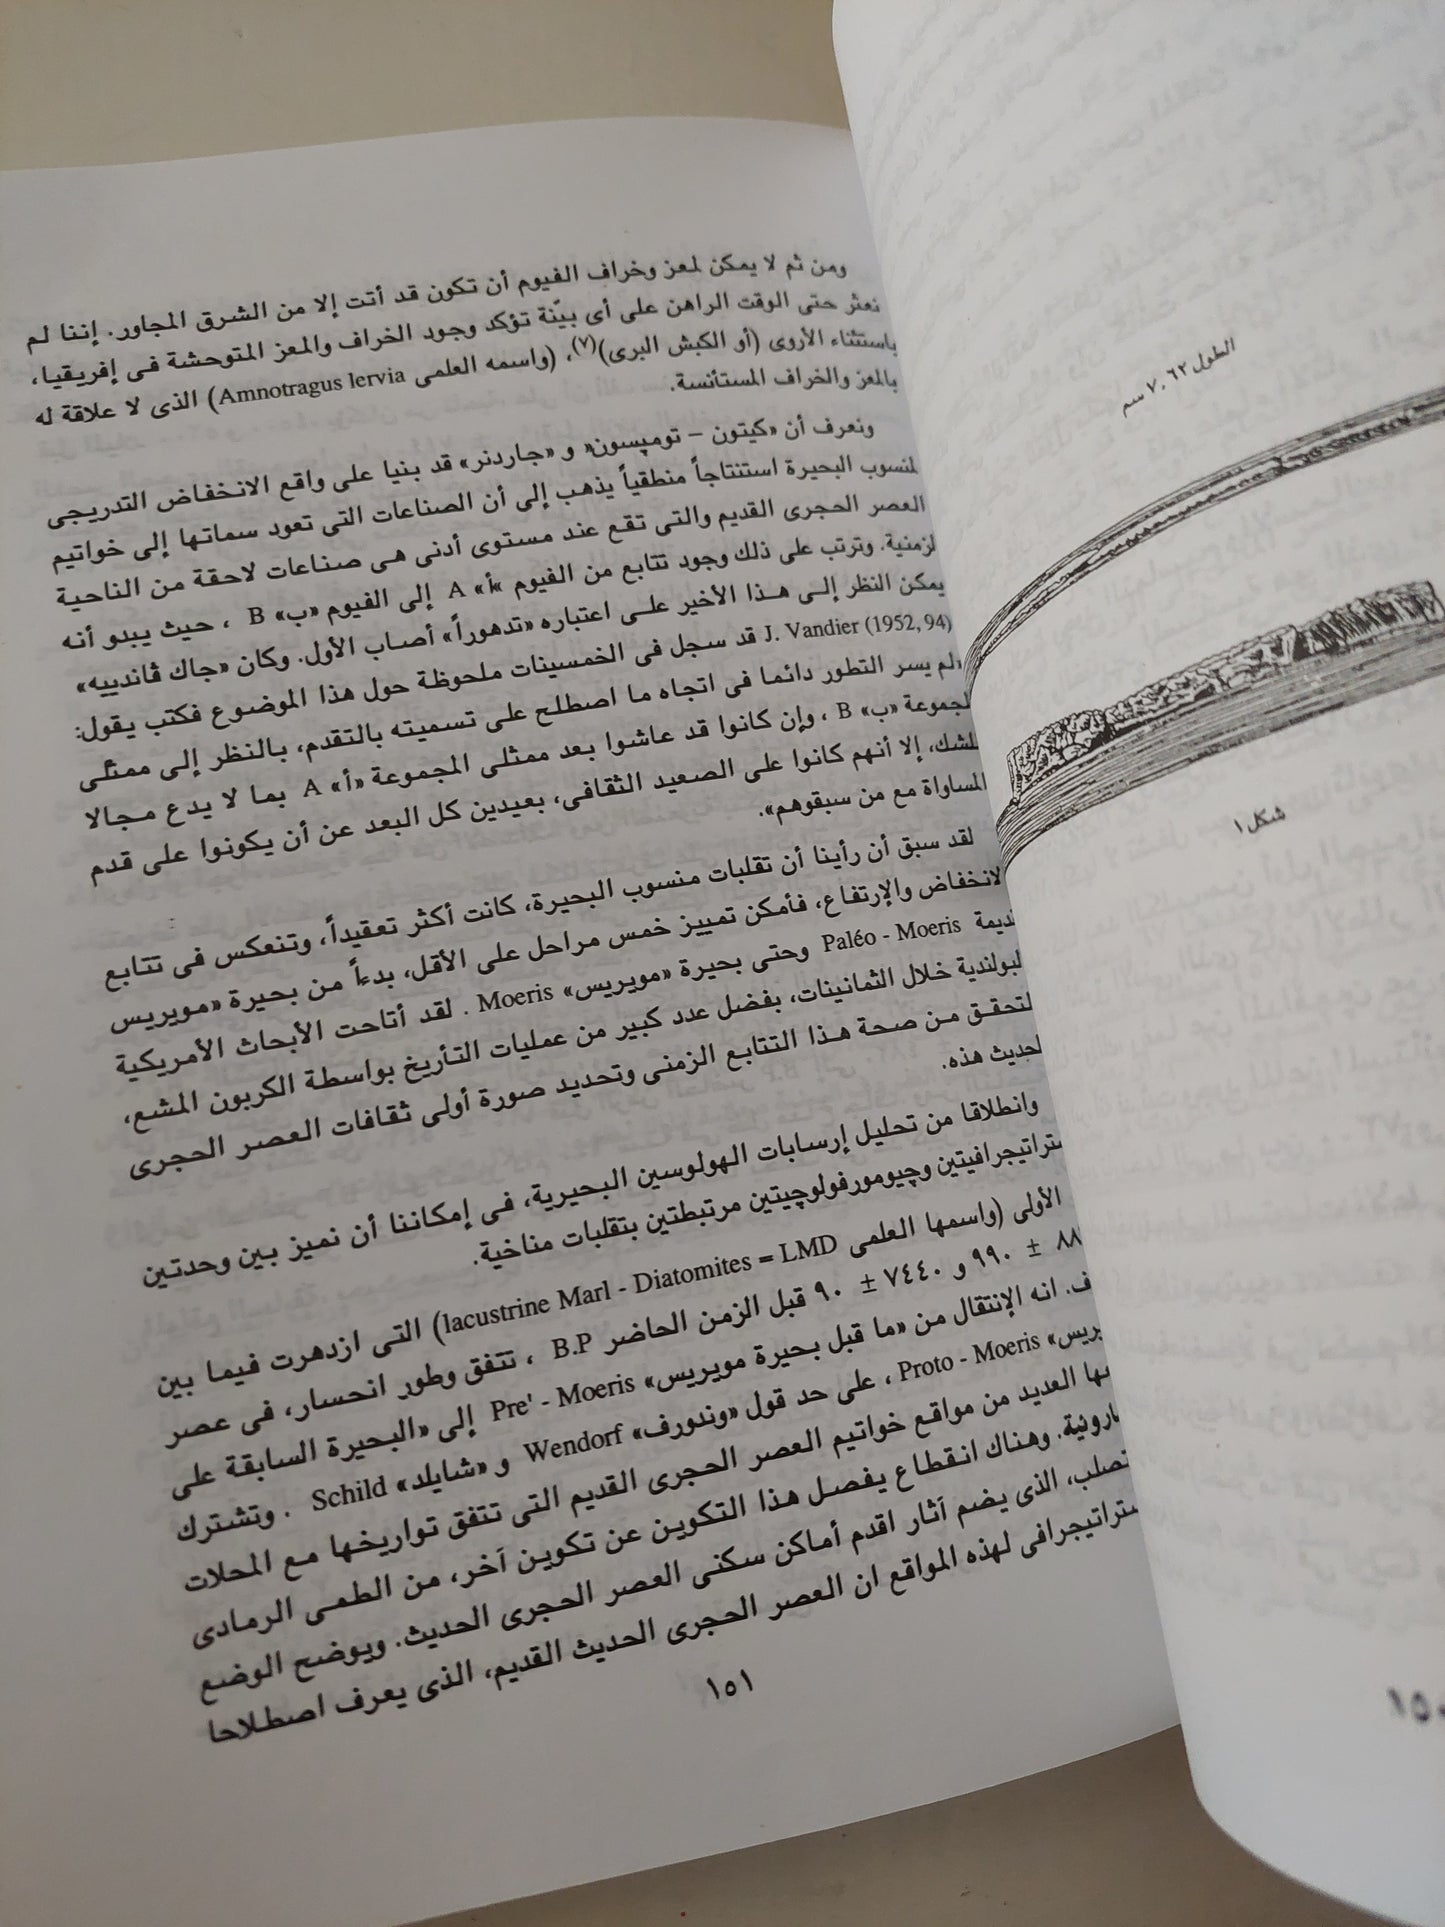 ومن ثم لا يمكن لمعز وخراف الفيوم أن تكون قد أتت إلا من الشرق المجاور. إننا لم
نعثر حتى الوقت الراهن على أى بيّنة تؤكد وجود الخراف والمعز المتوحشة فى إفريقيا،
باستثناء الأروى (أو الكبش البرى)(٧)، (واسمه العلمى Amnotragus lervia) الذى لا علاقة له
بالمعز والخراف المستأنسة.
ونعرف أن «كيتون – تومپسون» و «جاردنر» قد بنيا على واقع الانخفاض التدريجى
لمنسوب البحيرة استنتاجاً منطقياً يذهب إلى أن الصناعات التى تعود سماتها إلى خواتيم
العصر الحجرى القديم والتى تقع عند مستوى أدنى هى صناعات لاحقة من الناحية
لزمنية. وترتب على ذلك وجود تتابع من الفيوم «أ» A إلى الفيوم «ب» B ، حيث يبدو أنه
يمكن النظر إلى هذا الأخير على اعتباره «تدهوراً» أصاب الأول. وكان «جاك ڤاندييه»
J. Vandier (1952, 94) قد سجل فى الخمسينات ملحوظة حول هذا الموضوع فكتب يقول:
لم يسر التطور دائما فى اتجاه ما اصطلح على تسميته بالتقدم، بالنظر إلى ممثلى
لجموعة «ب» B ، وإن كانوا قد عاشوا بعد ممثلى المجموعة «أ» A بما لا يدع مجالا
للشك، إلا أنهم كانوا على الصعيد الثقافى، بعيدين كل البعد عن أن يكونوا على قدم
المساواة مع من سبقوهم».
لقد سبق أن رأينا أن تقلبات منسوب البحيرة، كانت أكثر تعقيداً، وتنعكس فى تتابع
لانخفاض والإرتفاع، فأمكن تمييز خمس مراحل على الأقل، بدءاً من بحيرة «مويريس
قديمة Paléo - Moeris وحتى بحيرة «مويريس» Moeris . لقد أتاحت الأبحاث الأمريكية
لبولندية خلال الثمانينات، بفضل عدد كبير من عمليات التأريخ بواسطة الكربون المشع،
لتحقق من صحة هذا التتابع الزمنى وتحديد صورة أولى ثقافات العصر الحجرى
لحديث هذه.
وانطلاقا من تحليل إرسابات الهولوسين البحيرية، فى إمكاننا أن نميز بين وحدتين
ستراتيجرافيتين وچيومورفولوچيتين مرتبطتين بتقلبات مناخية.
الأولى (واسمها العلمى lacustrine Marl - Diatomites = LMD) التى ازدهرت فيما بين
٨٨ ± ٩٩٠ و ٧٤٤٠ ± ٩٠ قبل الزمن الحاضر B.P ، تتفق وطور انحسار، فى عصر
ف. انه الإنتقال من «ما قبل بحيرة مويريس» Pre' - Moeris إلى «البحيرة السابقة على
يريس» Proto - Moeris ، على حد قول «وندورف» Wendorf و «شايلد» Schild . وتشترك
ها العديد من مواقع خواتيم العصر الحجرى القديم التى تتفق تواريخها مع المحلات
ارونية. وهناك انقطاع يفصل هذا التكوين عن تكوين آخر، من الطمى الرمادى
تصلب، الذى يضم آثار اقدم أماكن سكنى العصر الحجرى الحديث. ويوضح الوضع
ستراتيجرافى لهذه المواقع ان العصر الحجرى الحديث القديم، الذى يعرف اصطلاحا
١٥١
الطول ٧,٦٢ سم
شكل ١
١٥٠